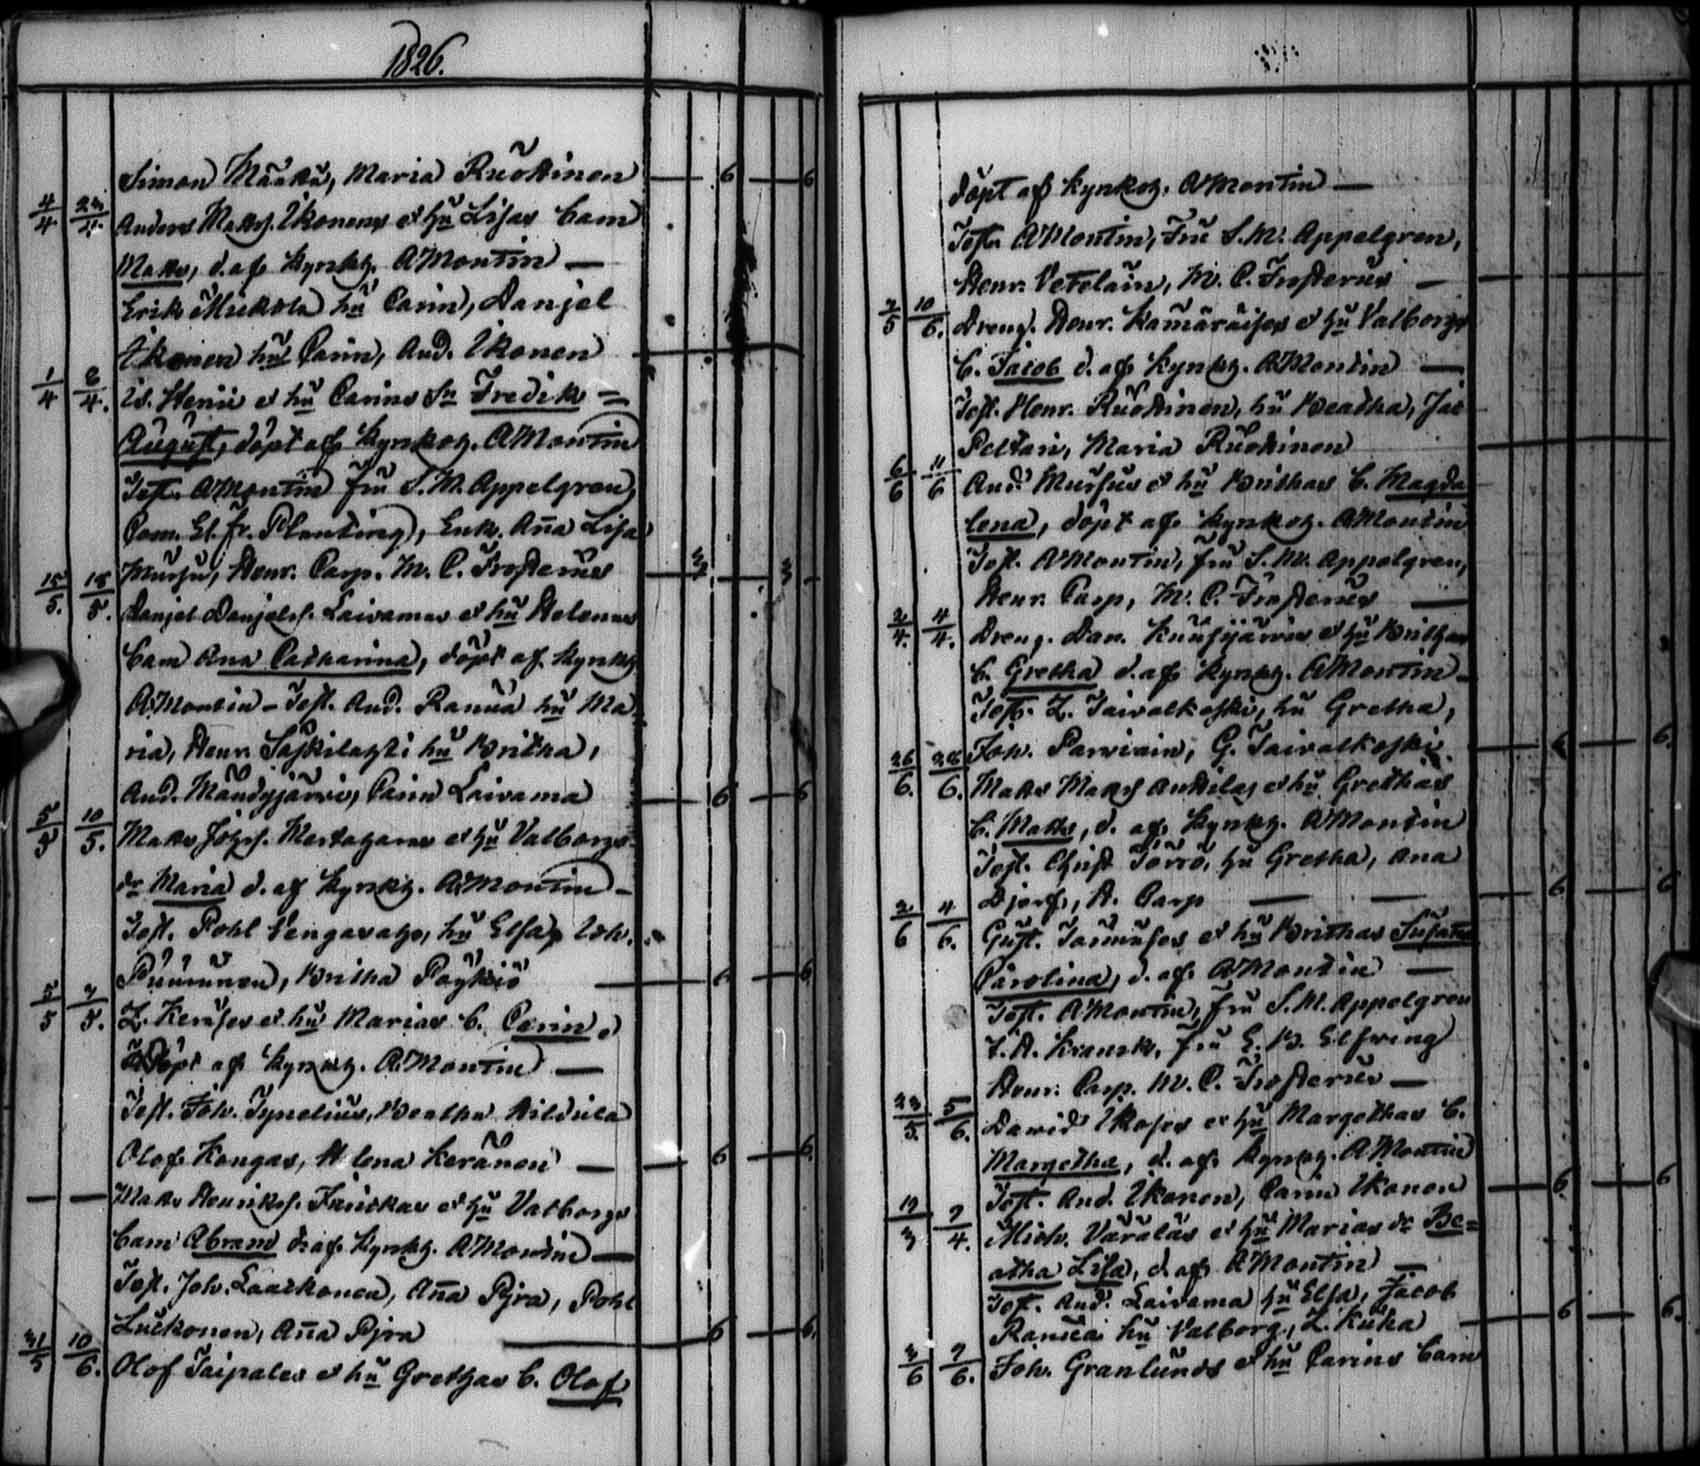 1826.
Simon Määttä, Maria Ruottinen — 6 — 6
4/4 23/4. Anders Matts. Ikonens et hu Lisas barn
Matts, d. af Kyrkoh. A Montin —
Erik Mickola hu Carin, Danjel
Ikonen hu Carin, And. Ikonen
1/4 2/4. Is. et hu Carins Sn Fredik =
August, döpt af Kyrkoh. A Montin
Test. A Montin fru S. M. Appelgren,
Com. El. fr. Planting, Enk. Ana Lisa
Mursu, Henr. Carp. M. C. Frosterus — 3 — 3
15/5. 18/5. Danjel Danjels. Laivamas et hu Helenas
barn Ana Catharina, döpt af Kyrkoh
A Montin — Test. And. Ranua hu Ma
ria, Henr. hu Britha,
And. Mändyjärvi, Carin Laivama — 6 — 6
5/5 10/5. Matts Johs. et hu Valborgs
dr Maria d. af Kyrkoh. A Montin —
Test. Pohl Vengasaho, hu Elsa, Joh.
Puurunen, Britha Pöykiö — 6 — 6
5/5 7/5. Z. et hu Marias b. Carin,
döpt af Kyrkoh. A Montin —
Test. Joh. Typelius, Beatha
Olof Kongas, Helena Keränen — 6 — 6
— — Matts Henrikss. et hu Valborgs
barn Abram d. af Kyrkoh. A Montin —
Test. Joh. Laakkonen, Ana Pjra, Pohl
Luckonen, Ana Pjra — 6 — 6.
31/5 10/6. Olof Taipales et hu Grethas b. Olof
döpt af Kyrkoh. A Montin —
Test. A Montin, Fru S. M. Appelgren,
Henr. Vetelain, M. C. Frosterus —
7/5 10/6. Dreng. Henr. Kämäräises et hu Valborgs
b. Jacob d. af Kyrkoh. A Montin —
Test. Henr. Ruottinen, hu Beatha, Jac
Peltari, Maria Ruottinen
6/6 11/6 And. Mursus et hu Brithas b. Magda
lena, döpt af Kyrkoh. A Montin
Test. A Montin, fru S. M. Appelgren,
Henr. Carp, M. C. Frosterus —
2/4. 4/4. Dreng. Dan. Kuusijärvis et hu Brithas
b. Gretha d. af Kyrkoh. A Montin —
Test. Z. Taivalkoski, hu Gretha,
Joh. Parviain, G. Taivalkoski — 6 — 6.
26/6. 28/6. Matts Matts Anttilas et hu Grethas
b. Matts, d. af Kyrkoh. A Montin
Test. Christ Törrö, hu Gretha, Ana
Björf, A. Carp — — 6 — 6
2/6 4/6. Gust. et hu Brithas Susana
Carolina, d. af A Montin —
Test. A Montin, fru S. M. Appelgren
J. A. Kranck, fru E. B. Elfving
Henr. Carp. M. C. Frosterus —
23/5. 5/6. David Ikoses et hu Margethas b.
Margetha, d. af Kyrkoh. A Montin
Test. And. Ikonen, Carin Ikonen — 6 — 6
17/3 7/4. Mich. Väräläs et hu Marias dr Be=
atha Lisa, d. af A Montin —
Test. And. Laivama hu Elsa, Jacob
Ranua hu Valborg, Z. Kuha — 6 — 6.
3/6 7/6. Joh. Granlunds et hu Carins barn